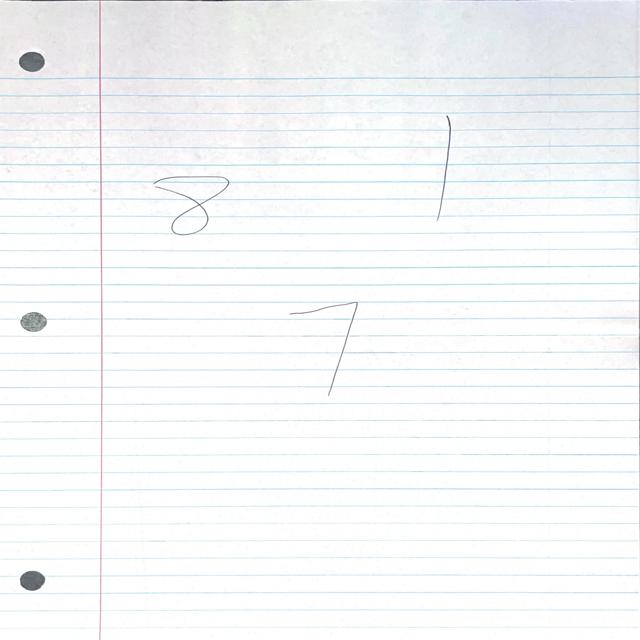 8 1
7